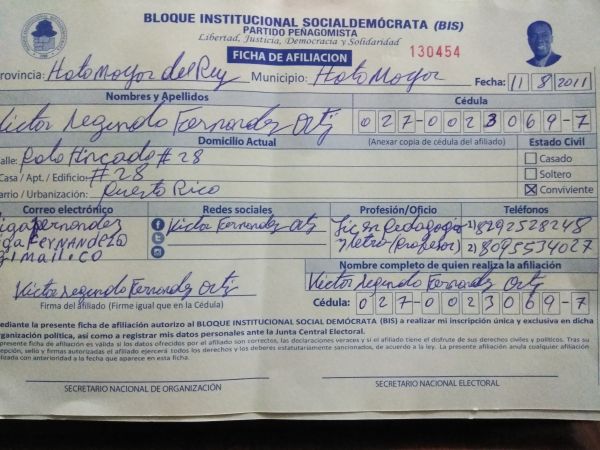 BLOQUE INSTITUCIONAL SOCIALDEMÓCRATA (BIS)
PARTIDO PEÑAGOMISTA
Libertad, Justicia, Democracia y Solidaridad
FICHA DE AFILIACION
130454
rovincia: Hato Mayor del Rey Municipio: Hato Mayor Fecha: 11 8 2011
Nombres y Apellidos Cédula
Victor Segundo Fernandez Ortiz 027-0023069-7
Domicilio Actual (Anexar copia de cédula del afiliado) Estado Civil
alle: Palo Hincado # 28 Casado
Casa / Apt. / Edificio: # 28 Soltero
arrio / Urbanización: Puerto Rico Conviviente
Correo electrónico Redes sociales Profesión/Oficio Teléfonos
Victor Fernandez Ortiz 1) 8292528248
(profesor) 2) 8095534027
Nombre completo de quien realiza la afiliación
Victor Segundo Fernandez Ortiz Victor Segundo Fernandez Ortiz
Firma del afiliado (Firme igual que en la Cédula) Cédula: 027-0023069-7
ediante la presente ficha de afiliación autorizo al BLOQUE INSTITUCIONAL SOCIAL DEMÓCRATA (BIS) a realizar mi inscripción única y exclusiva en dicha
rganización política, así como a registrar mis datos personales ante la Junta Central Electoral.
presente ficha de afiliación es válida si los datos ofrecidos por el afiliado son correctos, las declaraciones veraces y si el afiliado tiene el disfrute de sus derechos civiles y políticos. Tras su
epción, sello y firmas autorizadas el afiliado ejercerá todos los derechos y los deberes estatutariamente sancionados, de acuerdo a la ley. La presente afiliación anula cualquier afiliación
alizada con anterioridad a la fecha que aparece en esta ficha.
SECRETARIO NACIONAL DE ORGANIZACIÓN SECRETARIO NACIONAL ELECTORAL